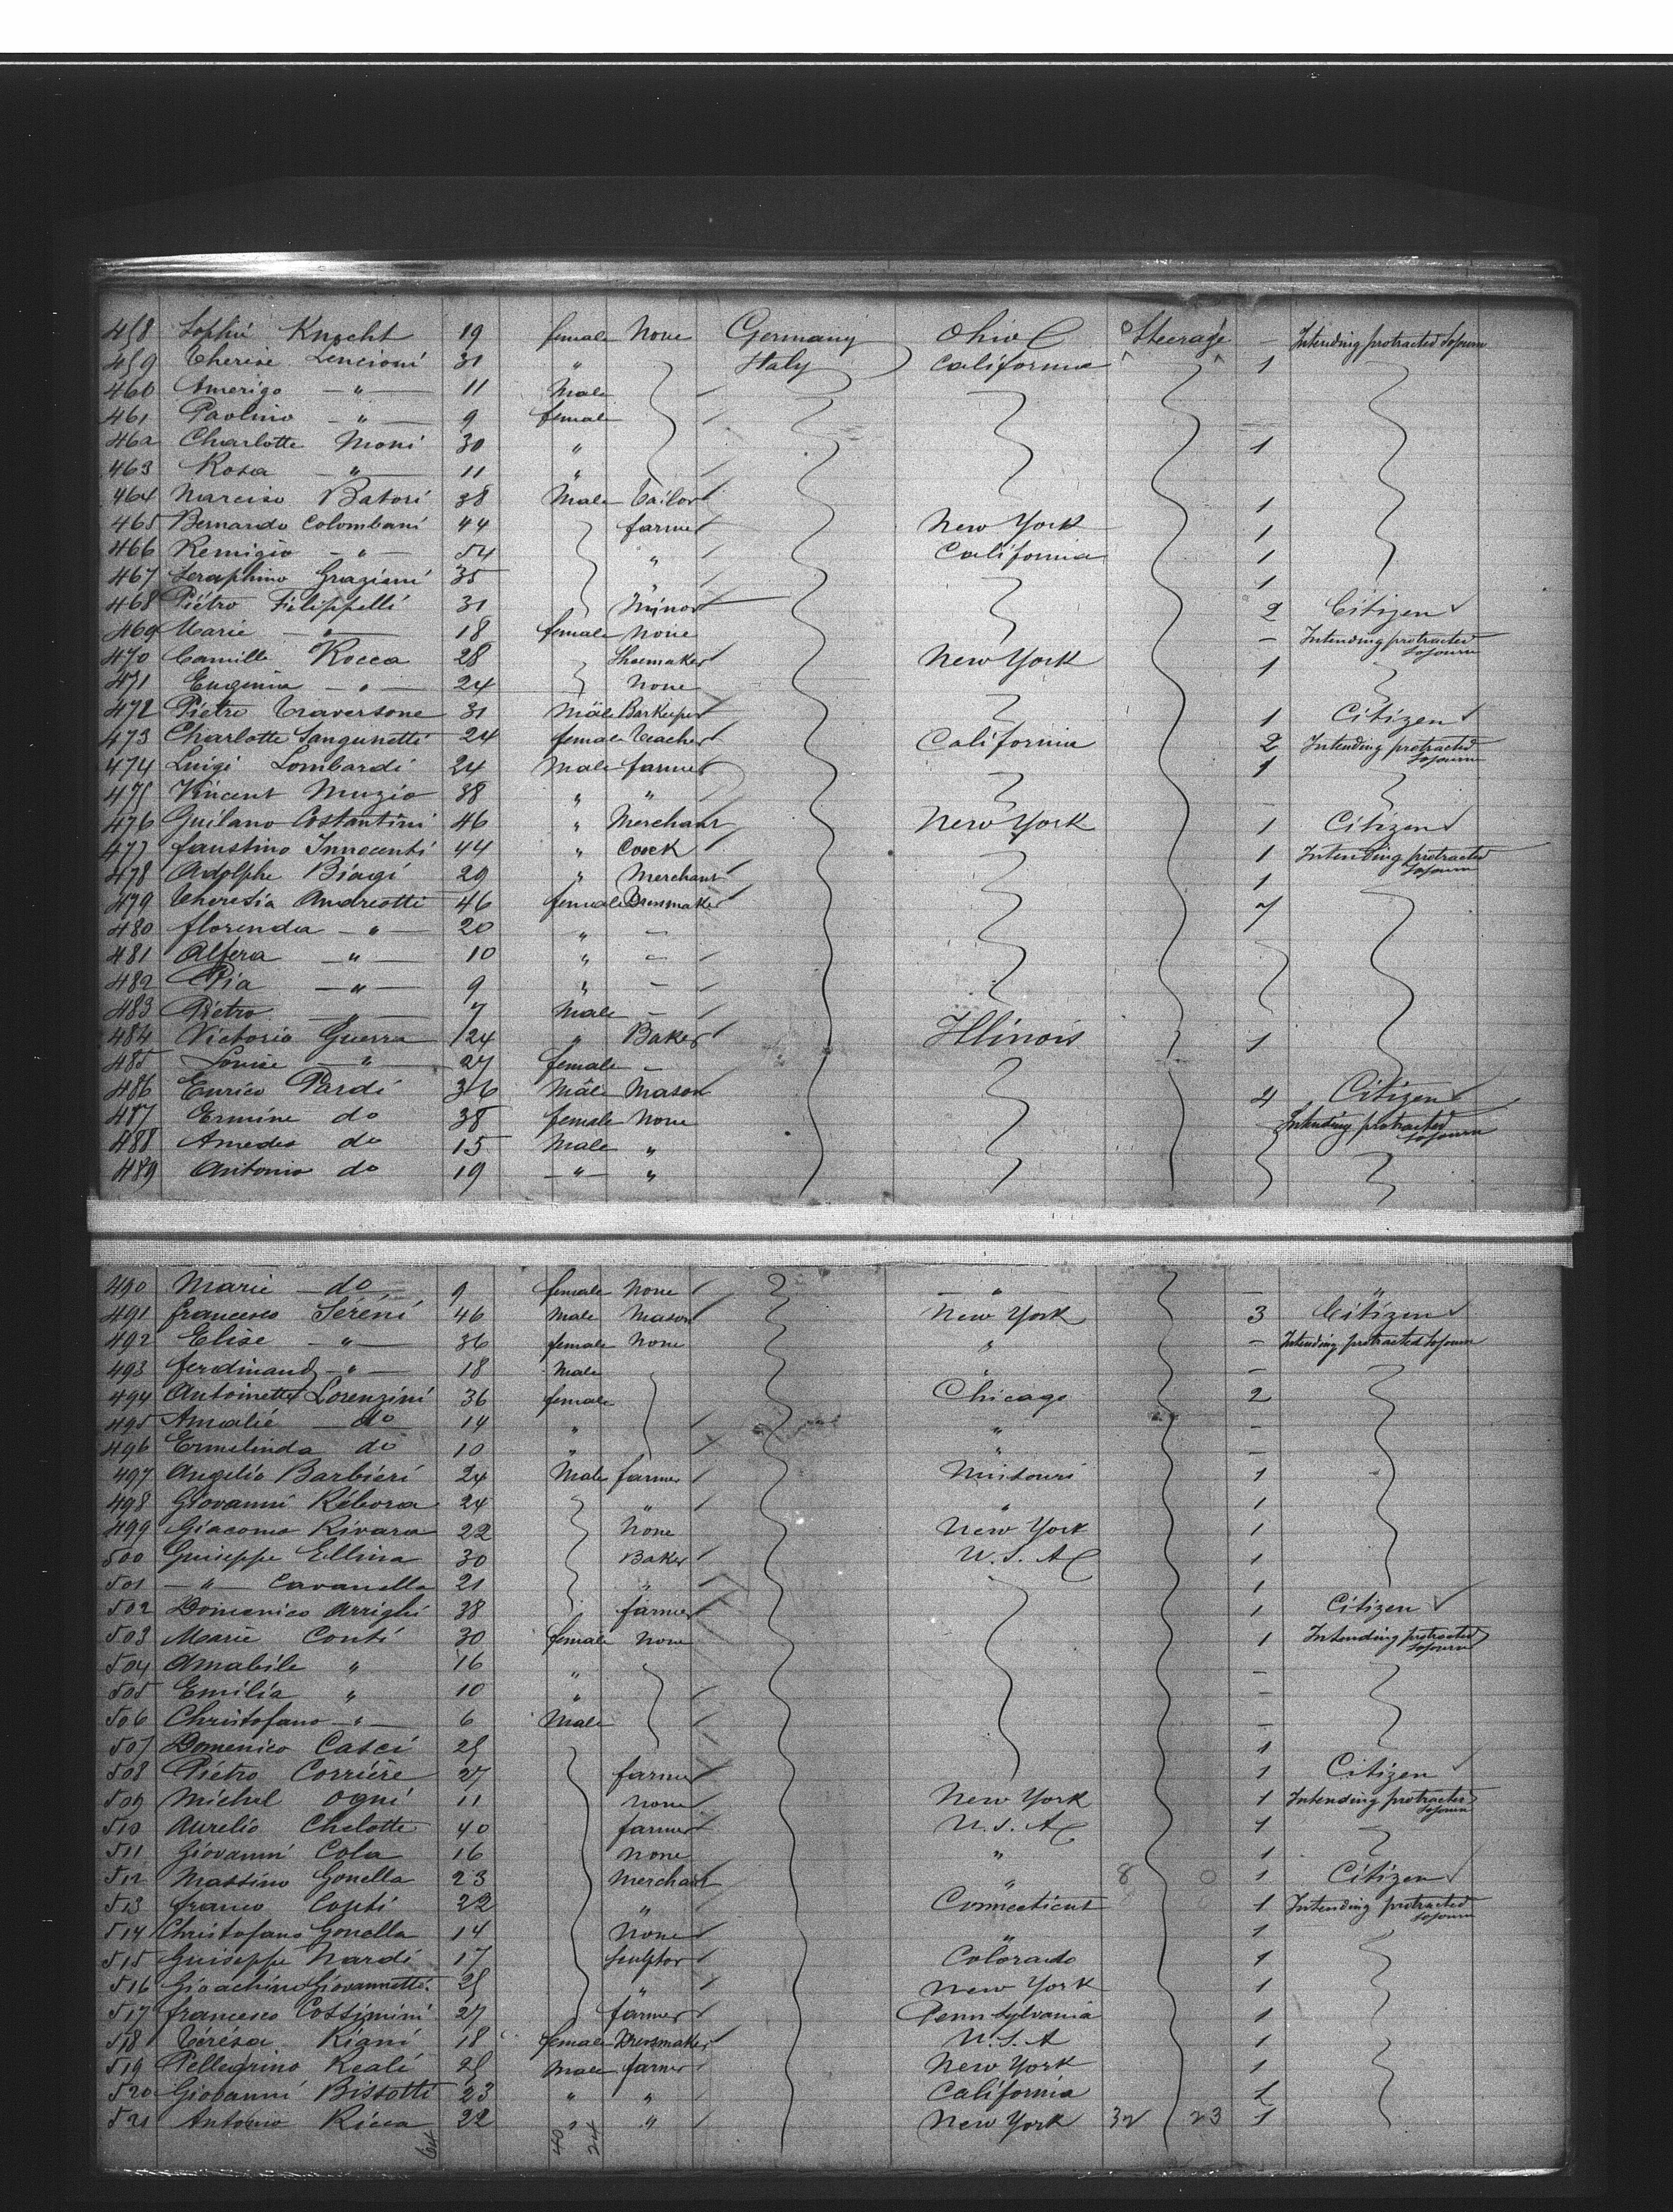 458 Sophie Knecht 19 female None Germany Ohio Steerage - Intending protracted Sojourn
459 Therese Lencioni 31 " Italy California 1
460 Amerigo - " - 11 Male
461 Paolino - " - 9 female
462 Charlotte Moni 30 " 1
463 Rosa - " - 11 "
464 Narciso Batori 38 Male Tailor 1
465 Bernardo Colombani 44 farmer New York 1
466 Remigio - " - 54 " California 1
467 Seraphino Graziani 35 " 1
468 Piétro Filippelli 31 Minor 2 Citizen
469 Marie - " - 18 female None - Intending protracted Sojourn
470 Camille Rocca 28 Shoemaker New York 1
471 Eugenia - " - 24 None
472 Pietro Traversone 31 Male Barkeeper 1 Citizen
473 Charlotte Sangunetti 24 female Teacher California 2 Intending protracted Sojourn
474 Luigi Lombardi 24 Male farmer 1
475 Vincent Muzio 38 " "
476 Guilano Costantini 46 " Merchant New York 1 Citizen
477 faustino Innocenti 44 " Coock 1 Intending protracted Sojourn
478 Adolphe Biagi 29 " Merchant 1
479 Theresia Andreotti 46 female Dressmaker 7
480 florenda - " - 20 " -
481 Alfera - " - 10 " -
482 Pia - " - 9 " -
483 Piétro - " - 7 Male -
484 Victorio Guerra 24 " Baker Illinois 1
485 Louise - " - 27 female -
486 Enrico Pardi 36 Male Mason 4 Citizen
487 Ermine do 38 female None Intending protracted Sojourn
488 Amedeo do 15 Male "
489 Antonio do 19 - " - "
490 Marie do 9 female None - " - - "
491 francesco Séréni 46 Male Mason New York 3 Citizen
492 Elise - " - 36 female None " - Intending protracted Sojourn
493 ferdinand - " - 18 Male -
494 Antoinette Lorenzini 36 female Chicago 2
495 Amalié do 14 " " -
496 Ermelinda do 10 " " -
497 Angelio Barbiéri 24 Male farmer Missouri 1
498 Giovanni Rébora 24 " " 1
499 Giacomo Rivara 22 None New York 1
500 Guiseppe Ellina 30 Baker U.S.A 1
501 - " - Cavanella 21 " 1
502 Domenico Arrighi 38 farmer 1 Citizen
503 Marie Conti 30 female None 1 Intending protracted Sojourn
504 Amabile " 16 " -
505 Emilia " 10 " -
506 Christofano - " - 6 Male -
507 Domenico Casci 25 1
508 Piétro Corriére 27 farmer 1 Citizen
509 Michel Ogni 11 none New York 1 Intending protracted Sojourn
510 Aurelio Chelotte 40 farmer U.S.A 1
511 Giovanni Cola 16 None " 1
512 Massimo Gonella 23 Merchant " 8 0 1 Citizen
513 franco Conti 22 " Connecticut 1 Intending protracted Sojourn
514 Christofano Gonella 14 None " 1
515 Guiseppe Nardi 17 Sculptor Colorado 1
516 Gioachino Giovannetti 25 " New York 1
517 francesco Cossimini 27 farmer Pennsylvania 1
518 Térésa Rigni 18 female Dressmaker U.S.A 1
519 Pellegrino Reali 25 Male farmer New York 1
520 Giovanni Bissotti 23 " " California 1
521 Antonio Ricca 22 " " New York 32 23 1
64 40 24